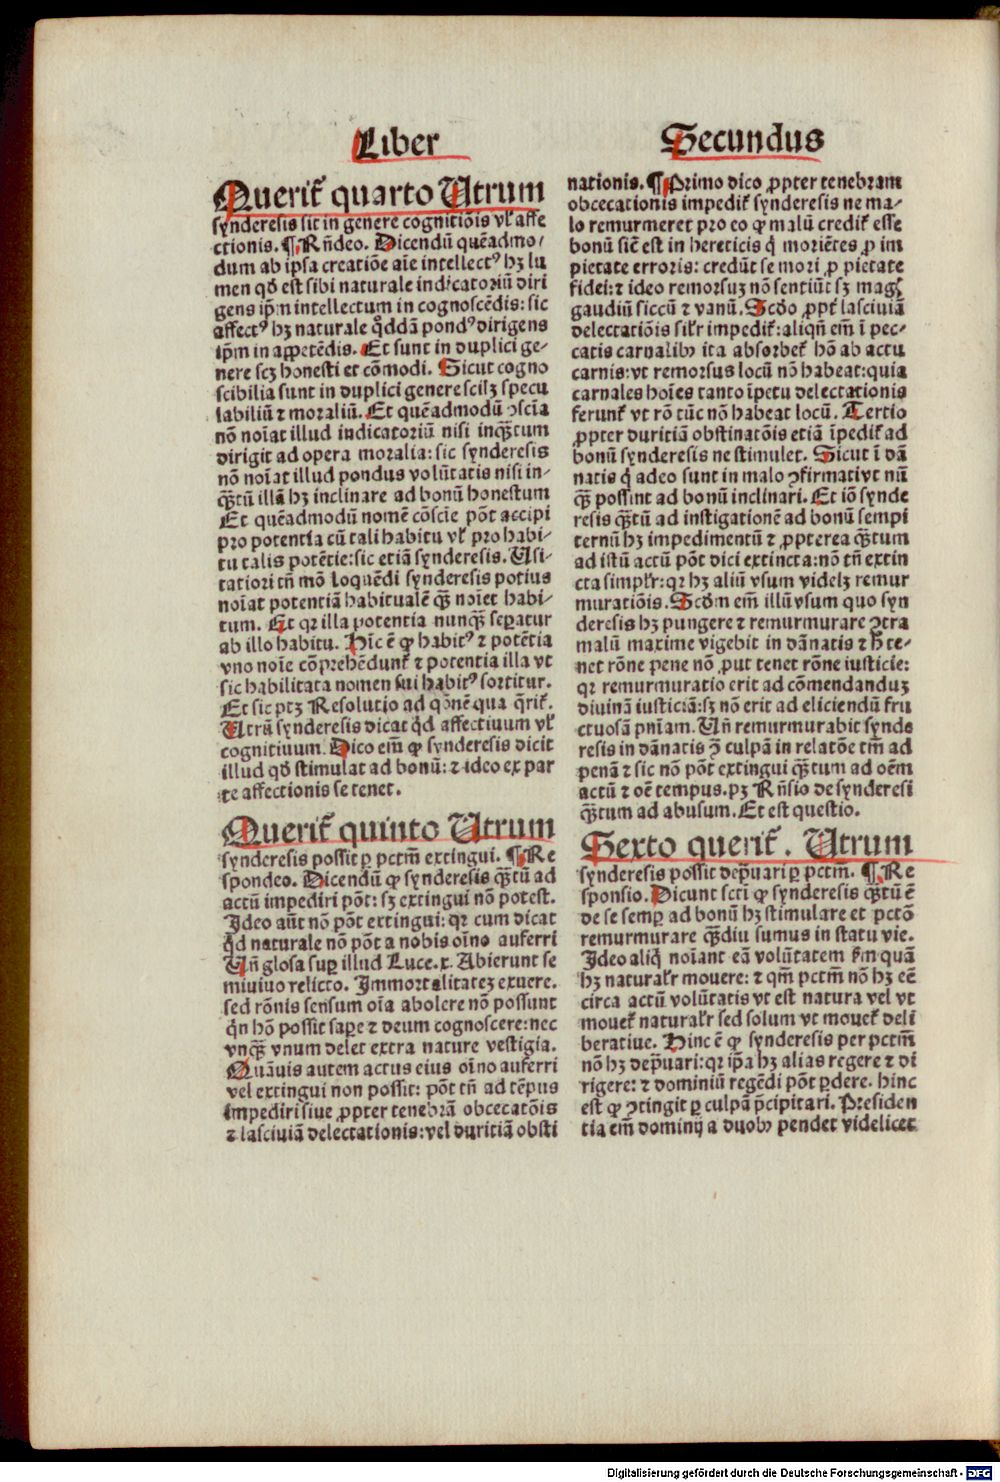 Liber
Querit᷑ quarto Utrum
synderesis sit in genere cognitiõis vl̕ affe
ctionis. ¶ Rñdeo. Dicendũ quẽadmo⸗
dum ab ipsa creatiõe aĩe intellectꝰ hꝫ lu
men qđ est sibi naturale indicatoriũ diri
gens ip̃m intellectum in cognoscẽdis: sic
affectꝰ hꝫ naturale q̇ddã pondꝰ dirigens
ip̃m in appetẽdis. Et sunt in duplici ge⸗
nere scꝫ honesti et cõmodi. Sicut cogno
scibilia sunt in duplici genere scilꝫ specu
labiliũ ⁊ moraliũ. Et quẽadmodũ ꝯscĩa
nõ noĩat illud indicatoriũ nisi inqꝫ̃tum
dirigit ad opera moralia: sic synderesis
nõ noĩat illud pondus volũtatis nisi in⸗
qꝫ̃tũ illã hꝫ inclinare ad bonũ honestum
Et quẽadmodũ nomẽ cõscĩe põt accipi
pro potentia cũ tali habitu vl̕ pro habi⸗
tu talis potẽtie: sic etiã synderesis. Usi⸗
tatiori tñ mõ loquẽdi synderesis potius
noĩat potentiã habitualẽ qꝫ̃ noĩet habi⸗
tum. Et qꝛ illa potentia nunqꝫ̃ seꝑatur
ab illo habitu. Hĩc ẽ ꝙ habitꝰ ⁊ potẽtia
vno noĩe cõprehẽdunt᷑ ⁊ potentia illa vt
sic habilitata nomen sui habitꝰ sortitur.
Et sic ptꝫ Resolutio ad q̃onẽ qua q̃rit᷑.
Utrũ synderesis dicat q̇d affectiuum vl̕
cognitiuum. Dico eĩm ꝙ synderesis dicit
illud qđ stimulat ad bonũ: ⁊ ideo ex par
te affectionis se tenet.
Querit᷑ quinto Utrum
synderesis possit ꝑ pctm̃ extingui. ¶ Re
spondeo. Dicendũ ꝙ synderesis qꝫ̃tũ ad
actũ impediri põt: sꝫ extingui nõ potest.
Ideo aũt nõ põt extingui: qꝛ cum dicat
q̇d naturale nõ põt a nobis oĩno auferri
Uñ glosa suꝑ illud Luce.x. Abierunt se
miuiuo relicto. Immortalitatẽ exuere.
sed rõnis sensum oĩa abolere nõ possunt
q̇n hõ possit saꝑe ⁊ deum cognoscere: nec
vnqꝫ̃ vnum delet extra nature vestigia.
Quãuis autem actus eius oĩno auferri
vel extingui non possit: põt tñ ad tẽpus
impediri siue ꝓpter tenebrã obcecatõis
⁊ lasciuiã delectationis: vel duritiã obsti
Secundus
nationis. ¶ Primo dico ꝓpter tenebram
obcecationis impedit᷑ synderesis ne ma⸗
lo remurmeret pro eo ꝙ malũ credit᷑ esse
bonũ siẽ est in hereticis q̇ moriẽtes ꝓ im
pietate erroris: credũt se mori ꝓ pietate
fidei: ⁊ ideo remorsuꝫ nõ sentiũt sꝫ magꝭ
gaudiũ siccũ ⁊ vanũ. Scďo ꝓpt̕ lasciuiã
delectatiõis silr̕ impedit᷑: aliqñ eĩm ĩ pec⸗
catis carnalibꝫ ita absorbet᷑ hõ ab actu
carnis: vt remorsus locũ nõ habeat: quia
carnales hoĩes tanto ĩpetu delectationis
ferunt᷑ vt rõ tũc nõ habeat locũ. Tertio
ꝓpter duritiã obstinatõis etiã ĩpedit᷑ ad
bonũ synderesis ne stimulet. Sicut ĩ dã
natis q̇ adeo sunt in malo ꝯfirmati vt nũ
qꝫ̃ possint ad bonũ inclinari. Et iõ synde
resis qꝫ̃tũ ad instigationẽ ad bonũ sempi
ternũ hꝫ impedimentũ ⁊ ꝓpterea qꝫ̃tum
ad istũ actũ põt dici extincta: nõ tñ extin
cta simplr̕: qꝛ hꝫ aliũ vsum videlꝫ remur
muratiõis. Scďm eĩm illũ vsum quo syn
deresis hꝫ pungere ⁊ remurmurare ꝯtra
malũ maxime vigebit in dãnatis ⁊ h̕ te⸗
net rõne pene nõ ꝓut tenet rõne iusticie:
qꝛ remurmuratio erit ad cõmendanduꝫ
diuinã iusticiã: sꝫ nõ erit ad eliciendũ fru
ctuosã pniam̃. Uñ remurmurabit synde
resis in dãnatis ꝯ̃ culpã in relatõe tm̃ ad
penã ⁊ sic nõ põt extingui qꝫ̃tum ad oẽm
actũ ⁊ oẽ tempus. pꝫ Rñsio de synderesi
qꝫ̃tum ad abusum. Et est questio.
Sexto querit᷑. Utrum
synderesis possit dep̃uari ꝑ pctm̃. ¶ Re
sponsio. Dicunt scti̇ ꝙ synderesis qꝫ̃tũ ẽ
de se semꝑ ad bonũ hꝫ stimulare et pctõ
remurmurare qꝫ̃diu sumus in statu vie.
Ideo aliq̇ noĩant eã volũtatem s̃m quã
hꝫ naturalr̕ mouere: ⁊ qm̃ pctm̃ nõ hꝫ eẽ
circa actũ volũtatis vt est natura vel vt
mouet᷑ naturalr̕ sed solum vt mouet᷑ deli
beratiue. Hinc ẽ ꝙ synderesis per pctm̃
nõ hꝫ dep̃uari: qꝛ ip̃a hꝫ alias regere ⁊ di
rigere: ⁊ dominiũ regẽdi põt ꝑdere. hinc
est ꝙ ꝯtingit ꝑ culpã p̃cipitari. Presiden
tia eĩm dominij a duobꝫ pendet videlicet
Digitalisierung gefördert durch die Deutsche Forschungsgemeinschaft - DFG